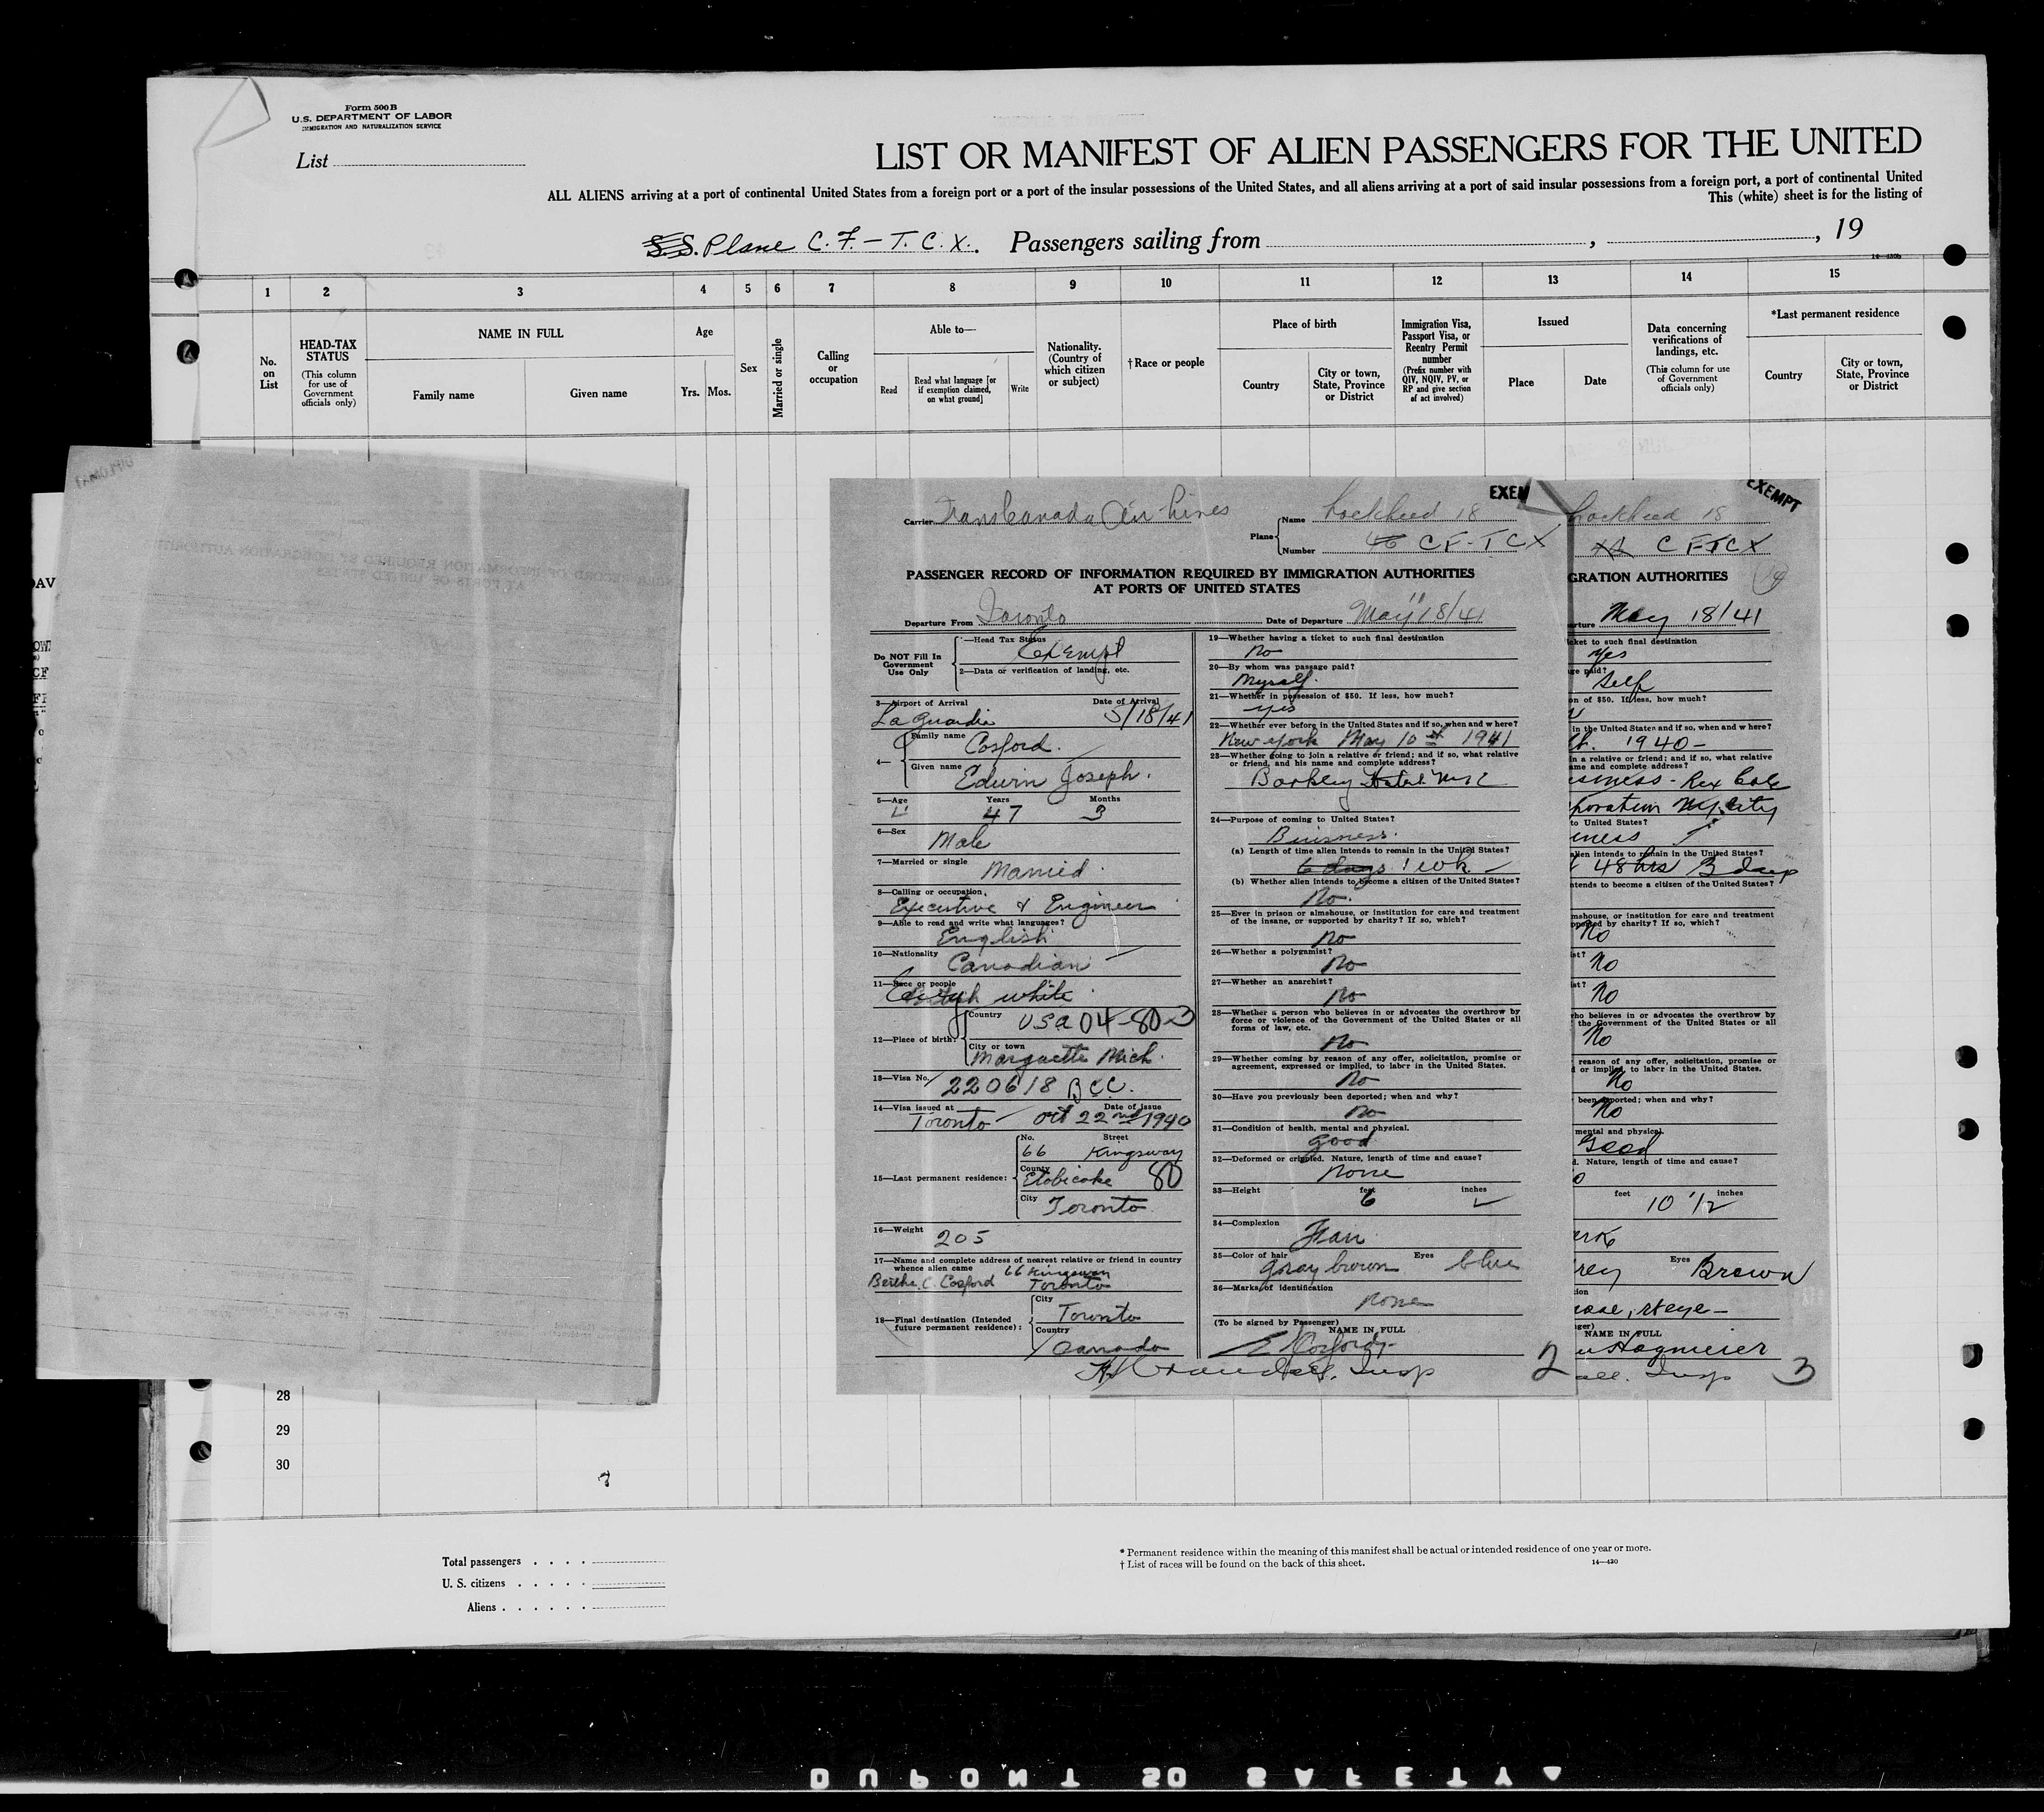 Form 500 B
U.S. DEPARTMENT OF LABOR
IMMIGRATION AND NATURALIZATION SERVICE
List
LIST OR MANIFEST OF ALIEN PASSENGERS FOR THE UNITED
ALL ALIENS arriving at a port of continental United States from a foreign port or a port of the insular possessions of the United States, and all aliens arriving at a port of said insular possessions from a foreign port, a port of continental United
This (white) sheet is for the listing of
S.S. Plane C. F. - T. C. X. Passengers sailing from , , 19
14-430b
1 2 3 4 5 6 7 8 9 10 11 12 13 14 15
No. on List
HEAD-TAX STATUS
(This column for use of Government officials only)
NAME IN FULL
Family name
Given name
Age
Yrs. Mos.
Sex
Married or single
Calling or occupation
Able to—
Read
Read what language [or if exemption claimed, on what ground]
Write
Nationality. (Country of which citizen or subject)
†Race or people
Place of birth
Country
City or town, State, Province or District
Immigration Visa, Passport Visa, or Reentry Permit number
(Prefix number with QIV, NQIV, PV, or RP and give section of act involved)
Issued
Place
Date
Data concerning verifications of landings, etc.
(This column for use of Government officials only)
*Last permanent residence
Country
City or town, State, Province or District
EXEM
Carrier TransCanada Air Lines
Plane Name Lockheed 18
Number 46 CF-TCX
PASSENGER RECORD OF INFORMATION REQUIRED BY IMMIGRATION AUTHORITIES
AT PORTS OF UNITED STATES
Departure From Toronto Date of Departure May 18/41
Do NOT Fill In Government Use Only
1—Head Tax Status Exempt
2—Data or verification of landing, etc.
3—Airport of Arrival Date of Arrival
La Guardia 5/18/41
4— Family name Cosford.
Given name Edwin Joseph.
5—Age Years Months
47 3
6—Sex Male
7—Married or single Married.
8—Calling or occupation,
Executive & Engineer
9—Able to read and write what languages?
English
10—Nationality Canadian
11—Race or people
white
12—Place of birth: Country USA 04-80-3
City or town
Marquette Mich.
13—Visa No. 220618 BCC.
14—Visa issued at Date of issue
Toronto Oct 22nd 1940
15—Last permanent residence:
No. Street
66 Kingsway
County
Etobicoke 80
City Toronto
16—Weight 205
17—Name and complete address of nearest relative or friend in country
whence alien came 66 Kingsway
Bertha. C. Cosford Toronto
18—Final destination (Intended future permanent residence):
City Toronto
Country Canada
19—Whether having a ticket to such final destination
No
20—By whom was passage paid?
Myself.
21—Whether in possession of $50. If less, how much?
yes
22—Whether ever before in the United States and if so, when and where?
New York May 10th 1941
23—Whether going to join a relative or friend; and if so, what relative
or friend, and his name and complete address?
Hotel
24—Purpose of coming to United States?
Buisness.
(a) Length of time alien intends to remain in the United States?
6 days 1 wk
(b) Whether alien intends to become a citizen of the United States?
No.
25—Ever in prison or almshouse, or institution for care and treatment
of the insane, or supported by charity? If so, which?
No
26—Whether a polygamist?
No
27—Whether an anarchist?
No
28—Whether a person who believes in or advocates the overthrow by
force or violence of the Government of the United States or all
forms of law, etc.
No
29—Whether coming by reason of any offer, solicitation, promise or
agreement, expressed or implied, to labor in the United States.
No
30—Have you previously been deported; when and why?
no
31—Condition of health, mental and physical.
good
32—Deformed or crippled. Nature, length of time and cause?
none
33—Height feet inches
6
34—Complexion Fair
35—Color of hair Eyes
gray brown blue
36—Marks of identification
none
(To be signed by Passenger)
NAME IN FULL
E Cosford
Insp
2
EXEMPT
Lockheed 18
CF-TCX
GRATION AUTHORITIES
rture May 18/41
icket to such final destination
Yes
ge paid?
Self
on of $50. If less, how much?
in the United States and if so, when and where?
1940-
in a relative or friend; and if so, what relative
ame and complete address?
siness - Rex Cole
poration N.Y. City
to United States?
iness
alien intends to remain in the United States?
48 hrs 3 days
ntends to become a citizen of the United States?
mshouse, or institution for care and treatment
pported by charity? If so, which?
No
ist?
No
ist?
No
who believes in or advocates the overthrow by
the Government of the United States or all
No
reason of any offer, solicitation, promise or
d or implied, to labor in the United States.
No
been deported; when and why?
No
mental and physical.
Good
d. Nature, length of time and cause?
o
feet inches
10 1/2
ark
Eyes
rey Brown
ion
nose, rt eye-
ger)
NAME IN FULL
Hagmeier
all. Insp
3
28
29
30
Total passengers
U. S. citizens
Aliens
* Permanent residence within the meaning of this manifest shall be actual or intended residence of one year or more.
† List of races will be found on the back of this sheet.
14-430
DUPONT SO SAFETY